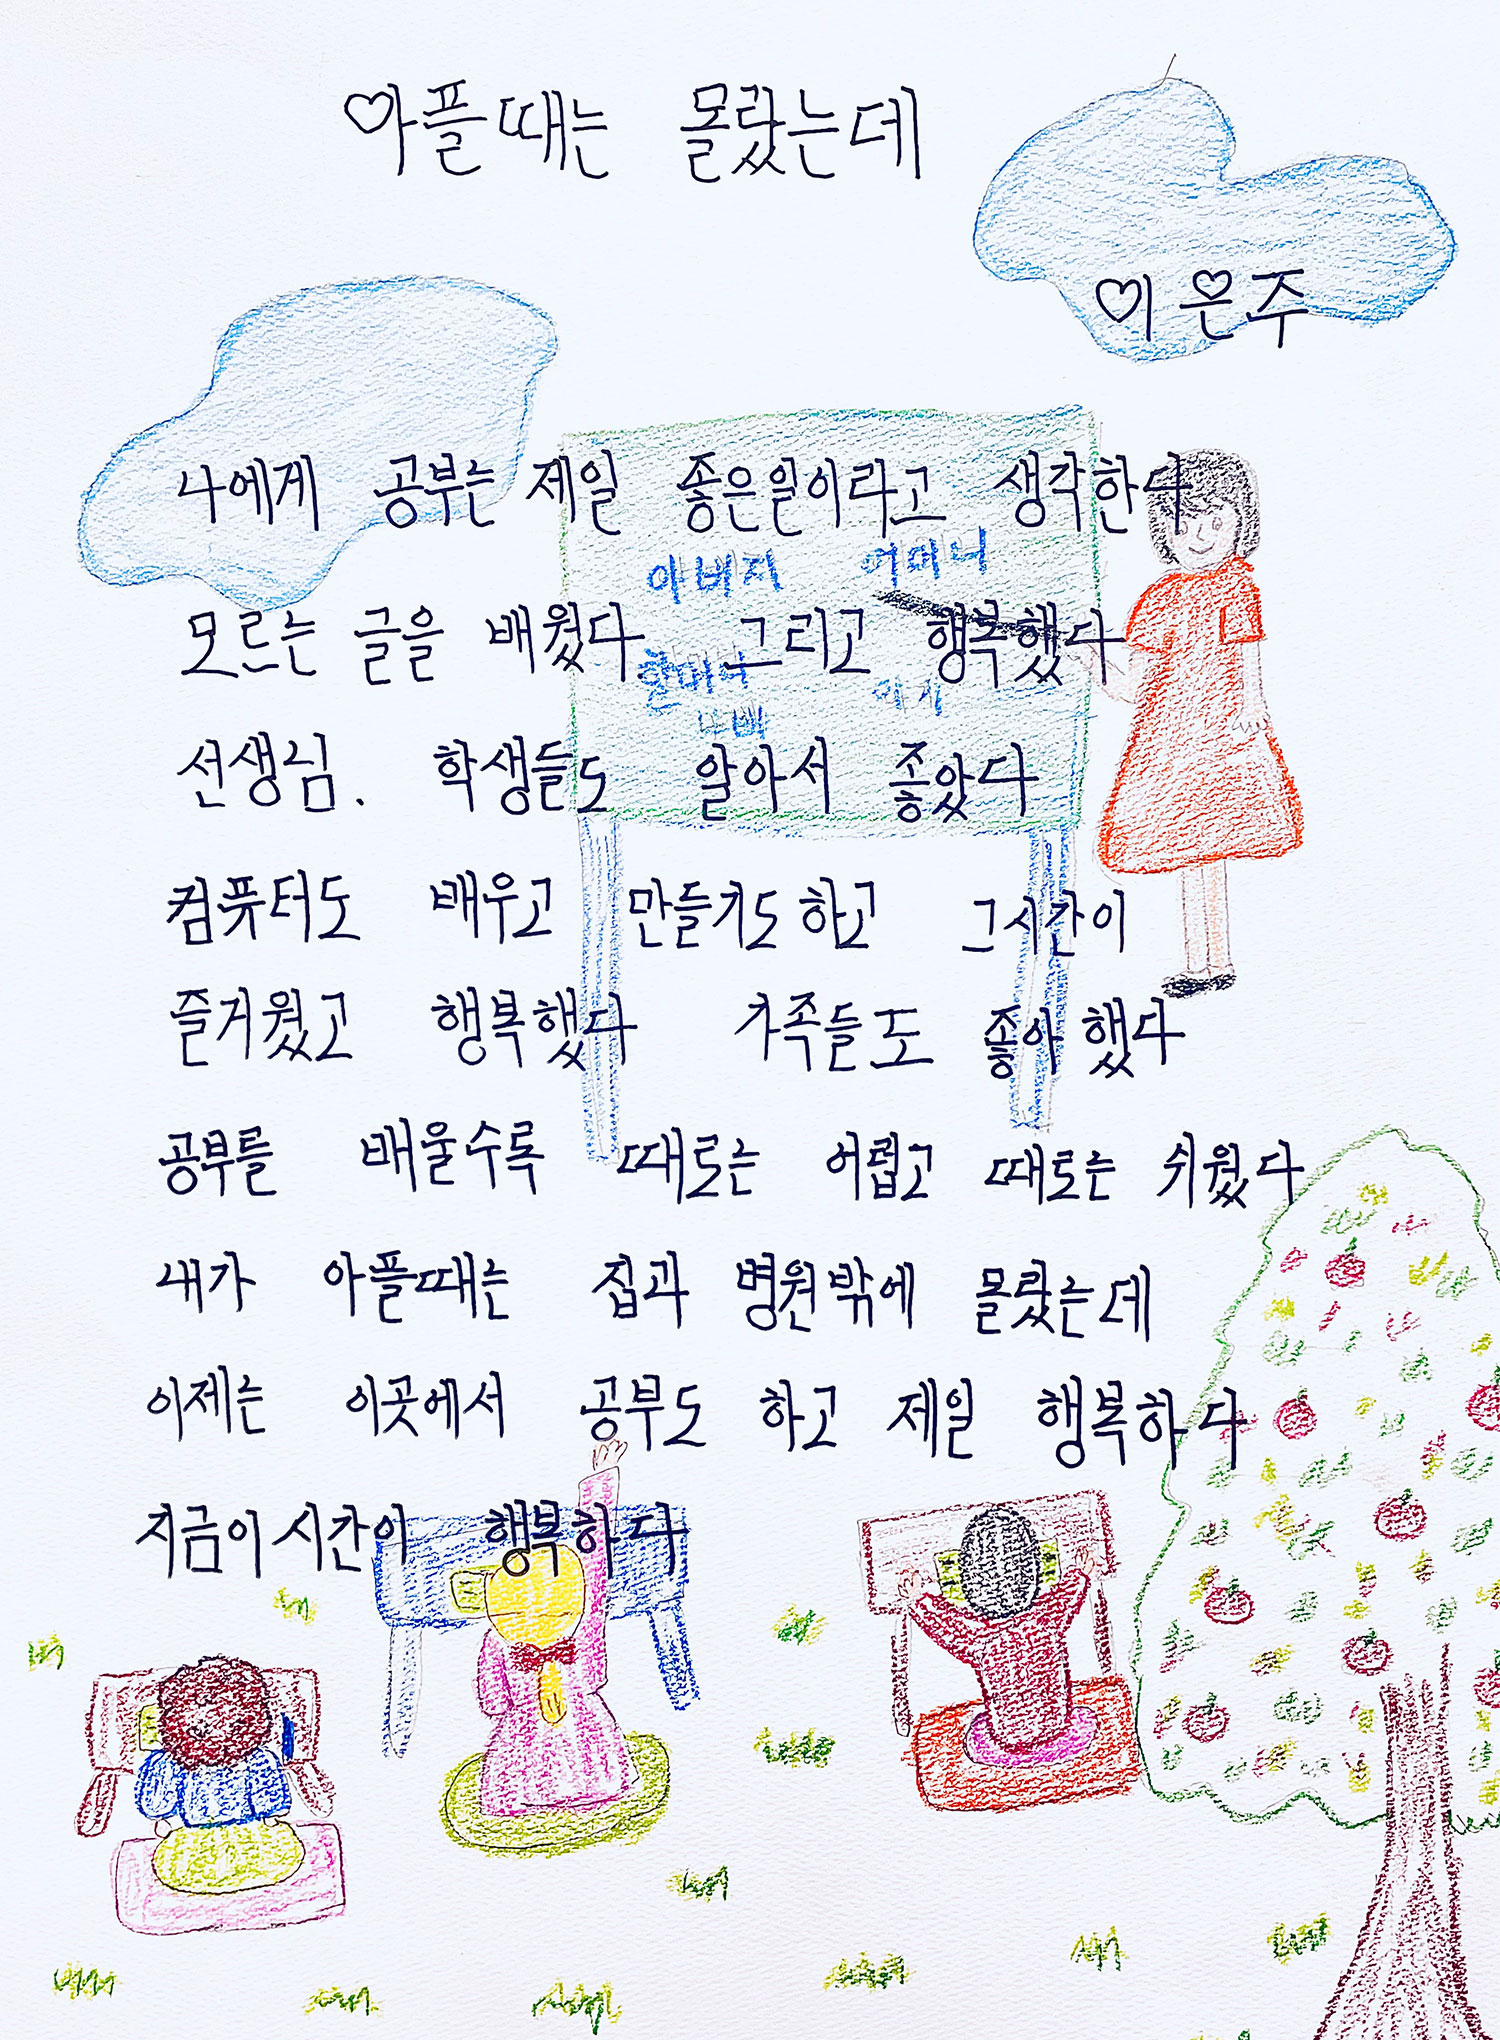 아플때는 몰랐는데
이은주
나에게 공부는 제일 좋은일이라고 생각한다
아버지 어머니
모르는 글을 배웠다 그리고 행복했다
할머니
나비
선생님. 학생들도 알아서 좋았다
컴퓨터도 배우고 만들기도하고 그시간이
즐거웠고 행복했다 가족들도 좋아했다
공부를 배울수록 때로는 어렵고 때로는 쉬웠다
내가 아플때는 집과 병원밖에 몰랐는데
이제는 이곳에서 공부도 하고 제일 행복하다
지금이시간이 행복하다